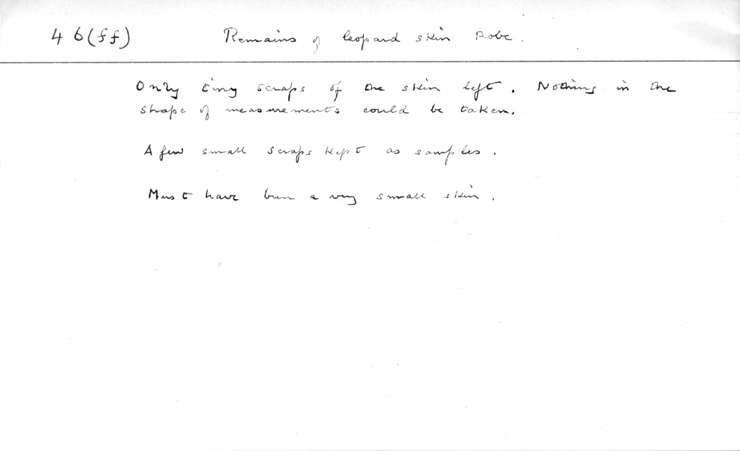 46(ff) Remains of leopard skin robe.
Only tiny scraps of the skin left. Nothing in the
shape of measurements could be taken.
A few small scraps kept as samples.
Must have been a very small skin.